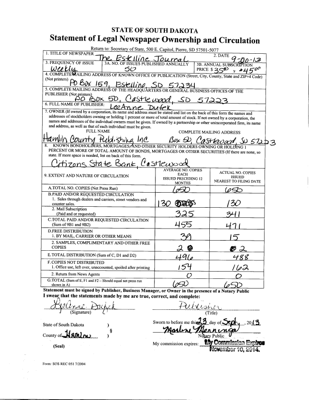 STATE OF SOUTH DAKOTA
Statement of Legal Newspaper Ownership and Circulation
Return to: Secretary of State, 500 E. Capitol, Pierre, SD 57501-5077
1. TITLE OF NEWSPAPER The Estelline Journal 2. DATE 9-20-13
3. FREQUENCY OF ISSUE Weekly 3A. NO. OF ISSUES PUBLISHED ANNUALLY 50 3B. ANNUAL SUBSCRIPTION PRICE
4. COMPLETE MAILING ADDRESS OF KNOWN OFFICE OF PUBLICATION (Street, City, County, State and ZIP+4 Code)
(Not printers) PO Box 159, Estelline SD 57234
5. COMPLETE MAILING ADDRESS OF THE HEADQUARTERS OF GENERAL BUSINESS OFFICES OF THE
PUBLISHER (Not printers) PO Box 50, Castlewood, SD 57223
6. FULL NAME OF PUBLISHER LeeAnne
7. OWNER (If owned by a corporation, its name and address must be stated and list on the back of this form the names and
addresses of stockholders owning or holding 1 percent or more of total amount of stock. If not owned by a corporation, the
names and addresses of the individual owners must be given. If owned by a partnership or other unincorporated firm, its name
and address, as well as that of each individual must be given.
FULL NAME COMPLETE MAILING ADDRESS
Hamlin County Publishing Inc Box 50 Castlewood SD 57223
8. KNOWN BONDHOLDERS, MORTGAGES AND OTHER SECURITY HOLDERS OWNING OR HOLDING 1
PERCENT OR MORE OF TOTAL AMOUNT OF BONDS, MORTGAGES OR OTHER SECURITIES (If there are none, so
state. If more space is needed, list on back of this form.
Citizens State Bank, Castlewood
9. EXTENT AND NATURE OF CIRCULATION AVERAGE NO. COPIES EACH ISSUED PRECEDING 12 MONTHS ACTUAL NO. COPIES ISSUED NEAREST TO FILING DATE
A. TOTAL NO. COPIES (Net Press Run) 650 650
B. PAID AND/OR REQUESTED CIRCULATION
1. Sales through dealers and carriers, street vendors and
counter sales 130 130
2. Mail Subscription
(Paid and or requested) 325 341
C. TOTAL PAID AND/OR REQUESTED CIRCULATION
(Sum of 9B1 and 9B2) 455 471
D. FREE DISTRIBUTION
1. BY MAIL, CARRIER OR OTHER MEANS 39 15
2. SAMPLES, COMPLIMENTARY AND OTHER FREE
COPIES 2 2
E. TOTAL DISTRIBUTION (Sum of C, D1 and D2) 496 488
F. COPIES NOT DISTRIBUTED
1. Office use, left over, unaccounted, spoiled after printing 154 162
2. Return from News Agents 0 0
G. TOTAL (Sum of E, F1 and F2 - Should equal net press run
shown in A) 650 650
Statement must be signed by Publisher, Business Manager, or Owner in the presence of a Notary Public
I swear that the statements made by me are true, correct, and complete:
Publisher
(Signature) (Title)
State of South Dakota )
Sworn to before me this 23 day of Sept, 2013
County of Hamlin )
Notary Public
(Seal) My commission expires: My Commission Expires
November 10, 2014.